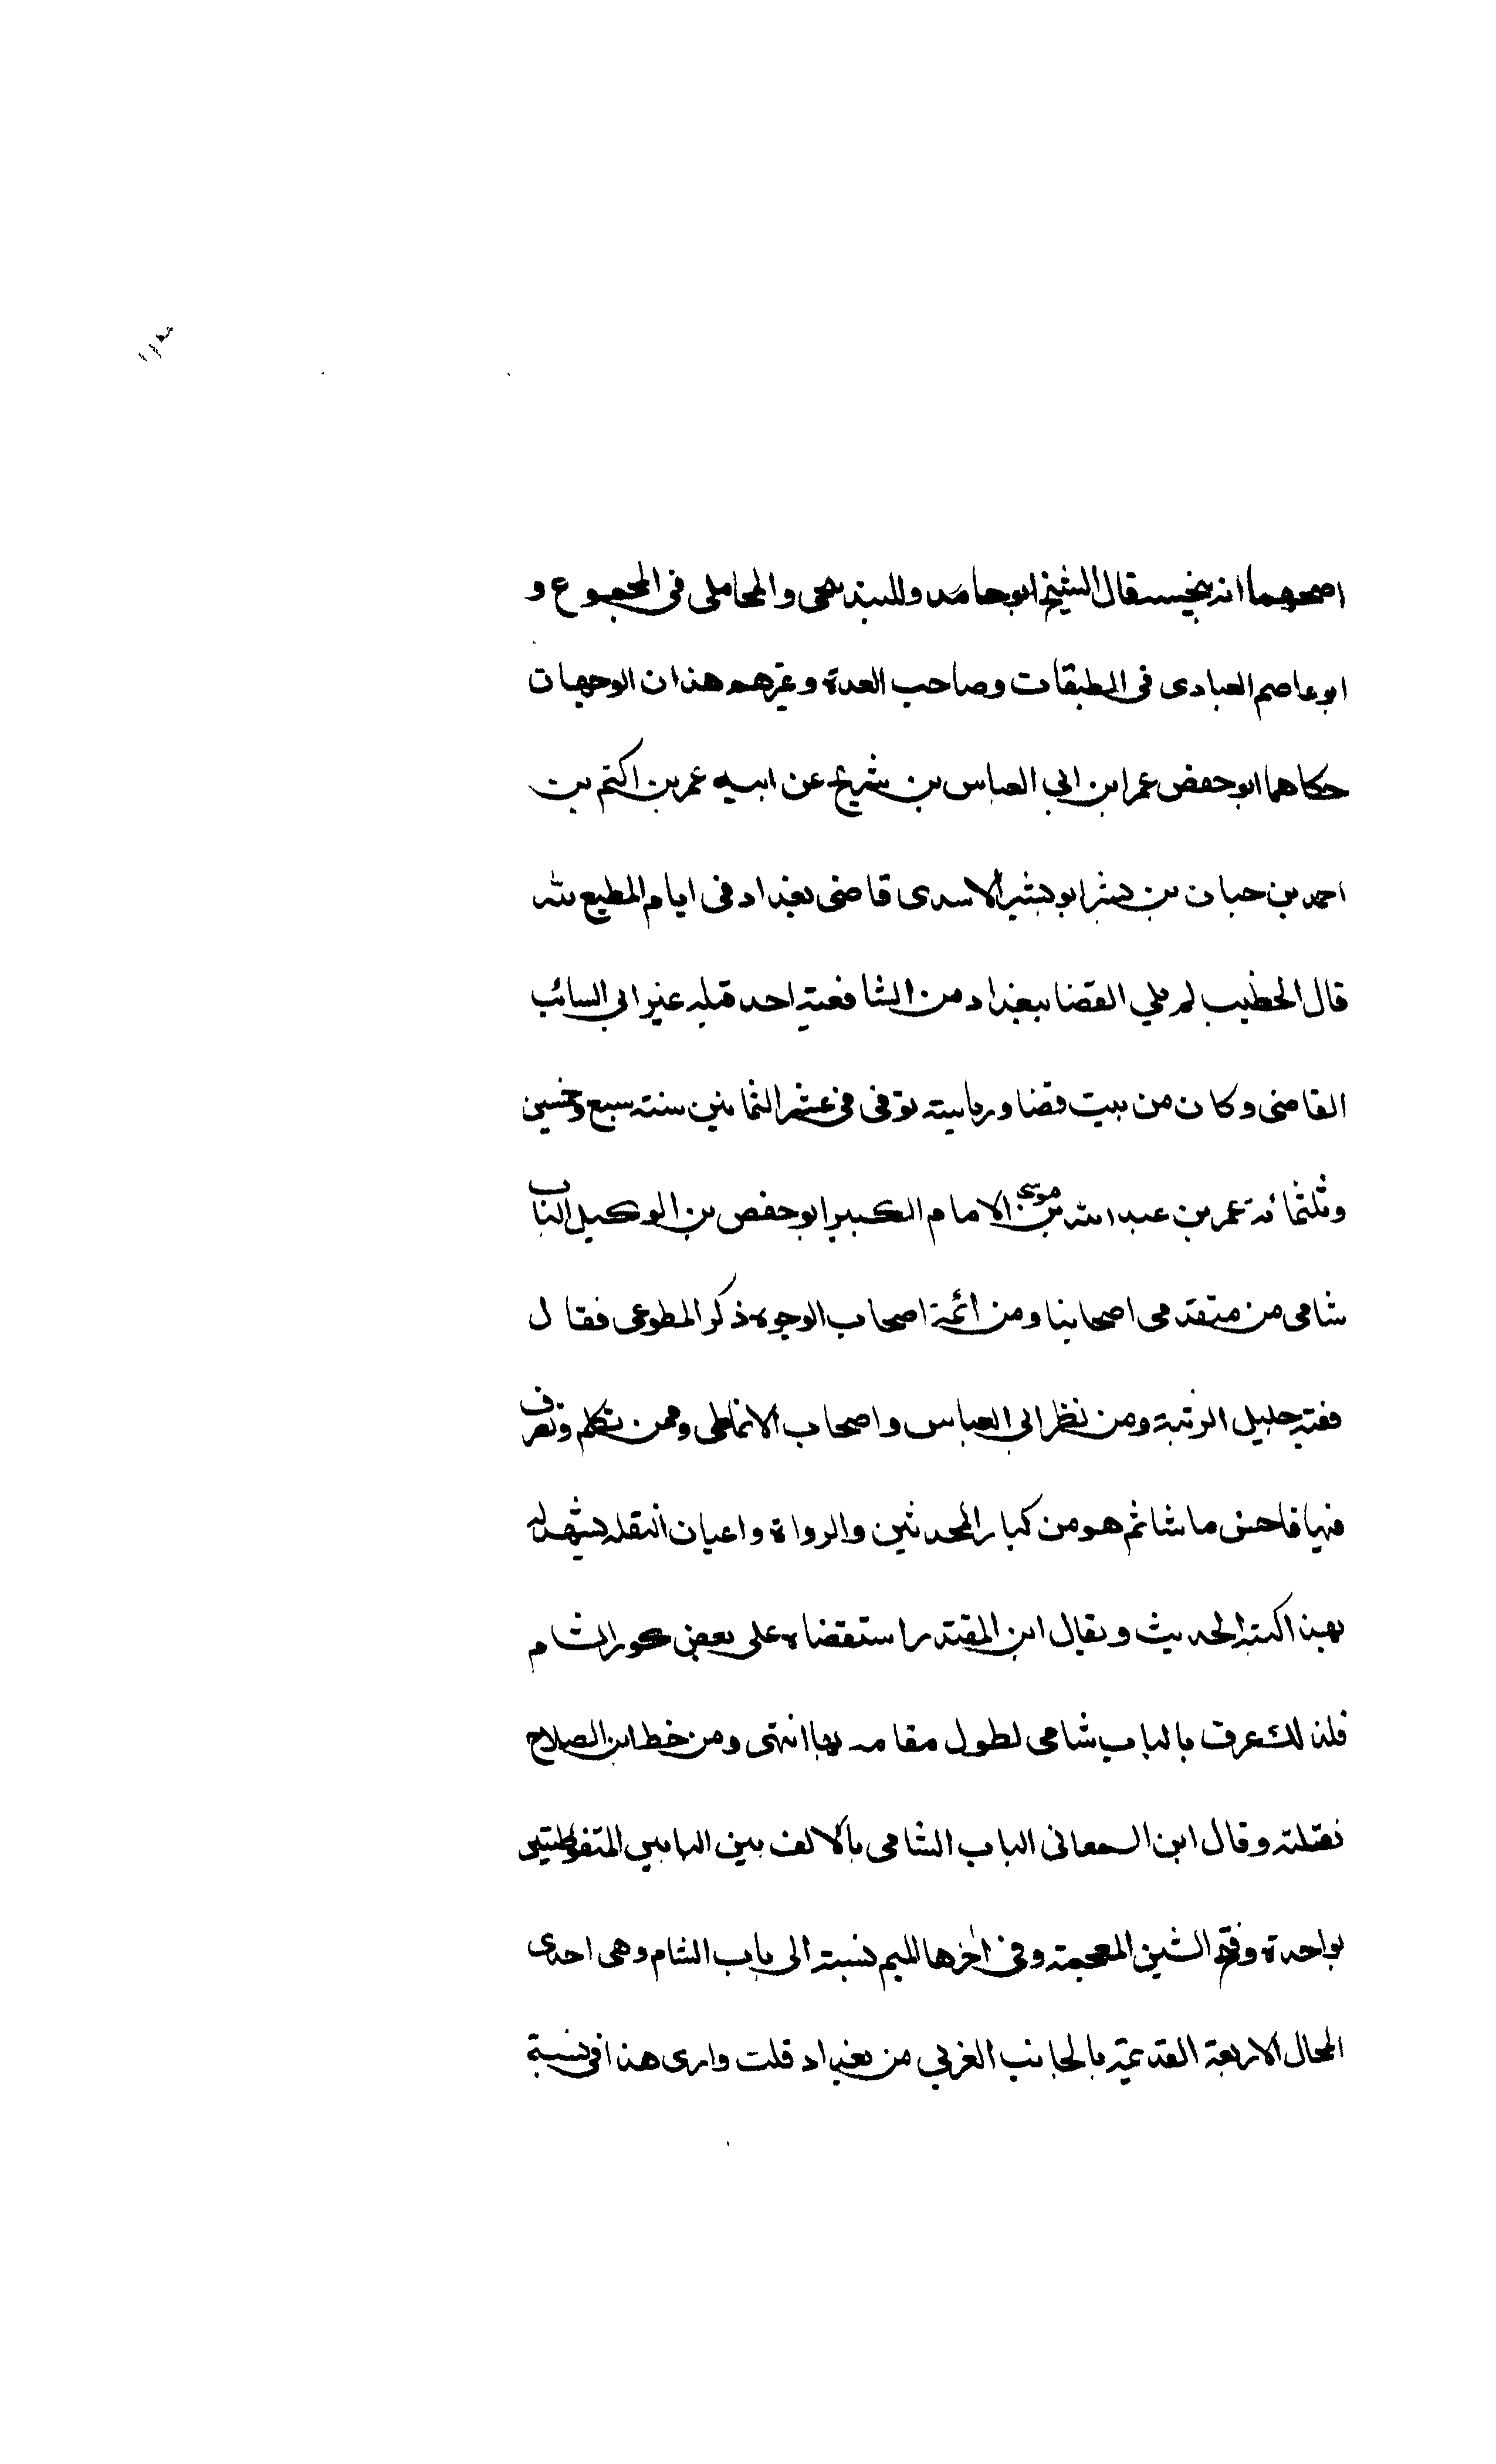 اصحهما انه ينجس قال الشيخ ابو حامد وللبند نيجى والمحاملى فى المجموع و
ابو عاصم العبادى فى الطبقات وصاحب العدة وغيرهم هذان الوجهان
حكاهما ابو حفص عمر ابن ابي العباس بن شريح عن ابيه عمر بن اكثم بن
احمد بن حبان بن بشر ابو بشير الاسدى قاضى بغداد فى ايام المطيع لله
قال الخطيب لم يلي القضا ببغداد من الشافعية احد قبله غير ابي السائب
القاضى وكان من بيت قضا ورياسة توفى فى عشر الثمانين سنة سبع وخمسين
وثلثمائة عمر بن عبد الله بن موسى الامام الكبير ابو حفص بن الوكيل الباب
شامى من متقدمى اصحابنا ومن ائمة اصحاب الوجوه ذكر المطوعى فقال
فقيه جليل الرتبة ومن نظر ابي العباس واصحاب الانماطى وممن تكلم وتصرف
فيها فاحسن ما شا ثم هو من كبار المحدثين والرواة واعيان النقله يشهد له
بهذا كتبه الحديث ويقال ابن المقتدر استقضاه على بعض كور الشام
فلذلك عرف بالباب شامى لطول مقامه بها انتهى ومن خط ابن الصلاح
نقلته وقال ابن السمعانى الباب الشامى بالالف بين البابين المتفوطتين
بواحدة وفتح الشين المعجمة وفى اخرها الميم نسبة الى باب الشام وهى احدى
المحال الاربعة القديمة بالجانب الغربي من بغداد قلت وارى هذا فى نسبة